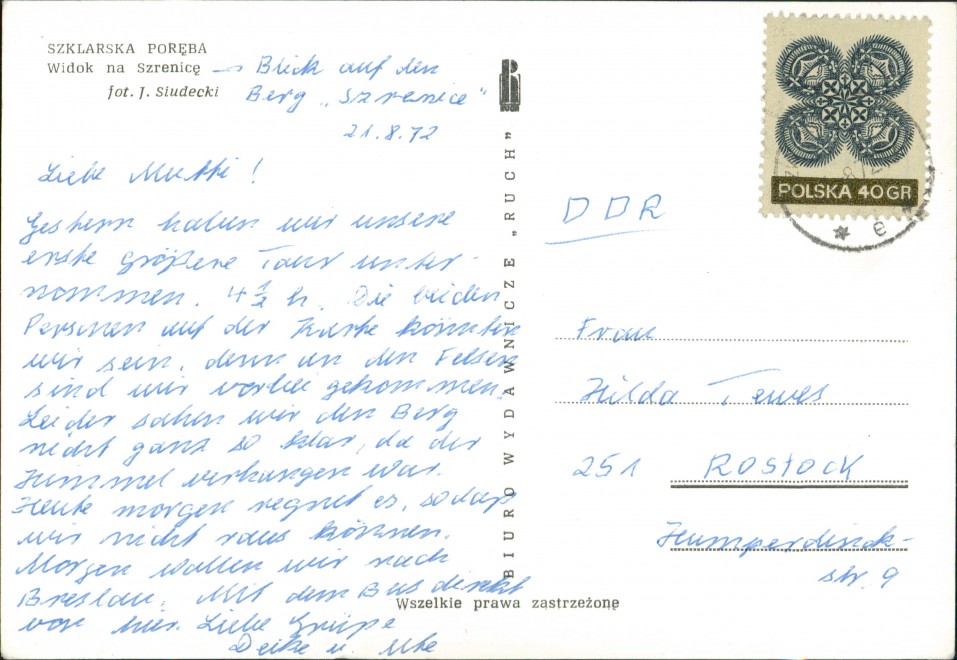 SZKLARSKA PORĘBA
Widok na Szrenicę → Blick auf den
fot. J. Siudecki Berg „Szrenice"
21.8.72
Liebe Mutti!
Gestern haben wir unsere
erste größere Tour unter-
nommen. 4½ h. Die beiden
Personen auf der Karte könnten
wir sein, denn an den Felsen
sind wir vorbei gekommen.
Leider sahen wir den Berg
nicht ganz so klar, da der
Himmel verhangen war.
Heute morgen regnet es, sodaß
wir nicht raus können.
Morgen wollen wir nach
Breslau. Mit dem Bus direkt
von hier. Liebe Grüße
u. Ute
BIURO WYDAWNICZE „RUCH"
RUCH
Wszelkie prawa zastrzeżone
POLSKA 40 GR
e
DDR
Frau
Hilda Tewes
251 ROSTOCK
Humperdinck-
str. 9